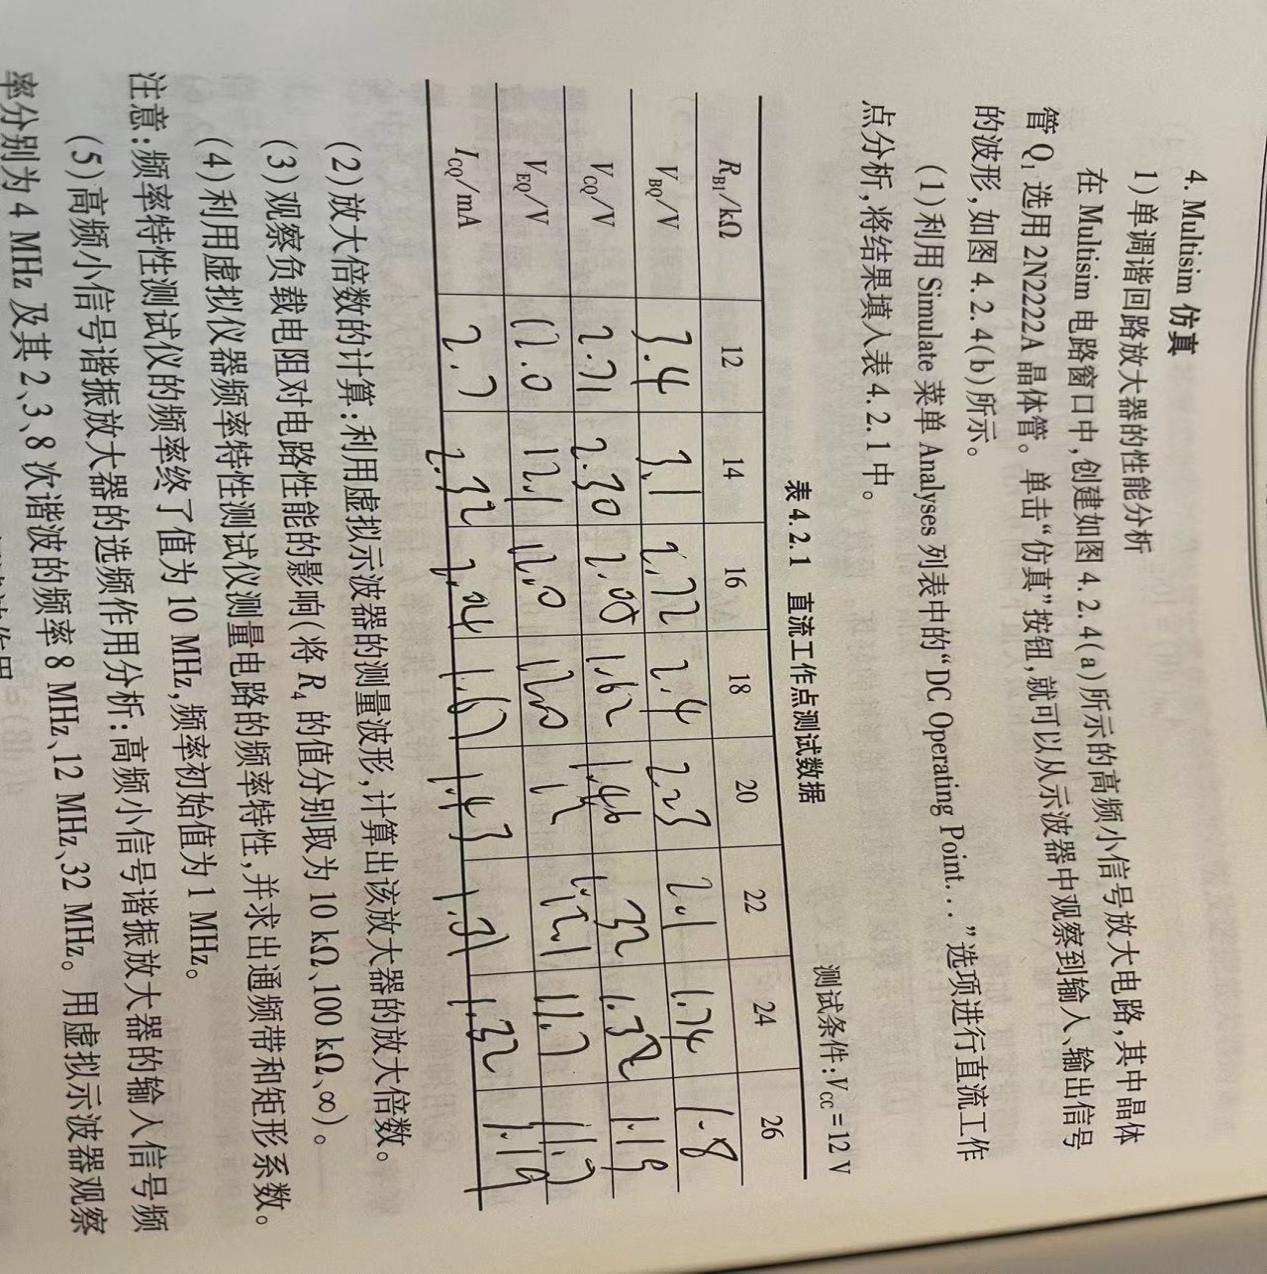 4. Multisim 仿真
1)单调谐回路放大器的性能分析
在 Multisim 电路窗口中,创建如图 4.2.4(a)所示的高频小信号放大电路,其中晶体
管 Q₁ 选用 2N2222A 晶体管。单击“仿真”按钮,就可以从示波器中观察到输入、输出信号
的波形,如图 4.2.4(b)所示。
(1)利用 Simulate 菜单 Analyses 列表中的“DC Operating Point...”选项进行直流工作
点分析,将结果填入表 4.2.1 中。
表 4.2.1 直流工作点测试数据 测试条件:V_CC=12 V
R_B1/kΩ 12 14 16 18 20 22 24 26
V_BQ/V 3.4 3.1 2.72 2.4 2.23 2.1 1.74 1.8
V_CQ/V 2.71 2.30 2.05 1.62 1.46 1.32 1.32 1.19
V_EQ/V 12.0 12.1 12.0 12.0 12 12.1 11.7 11.7
I_CQ/mA 2.7 2.32 2.04 1.67 1.43 1.31 1.32 1.19
(2)放大倍数的计算:利用虚拟示波器的测量波形,计算出该放大器的放大倍数。
(3)观察负载电阻对电路性能的影响(将 R₄ 的值分别取为 10 kΩ、100 kΩ、∞)。
(4)利用虚拟仪器频率特性测试仪测量电路的频率特性,并求出通频带和矩形系数。
注意:频率特性测试仪的频率终了值为 10 MHz,频率初始值为 1 MHz。
(5)高频小信号谐振放大器的选频作用分析:高频小信号谐振放大器的输入信号频
率分别为 4 MHz 及其 2、3、8 次谐波的频率 8 MHz、12 MHz、32 MHz。用虚拟示波器观察